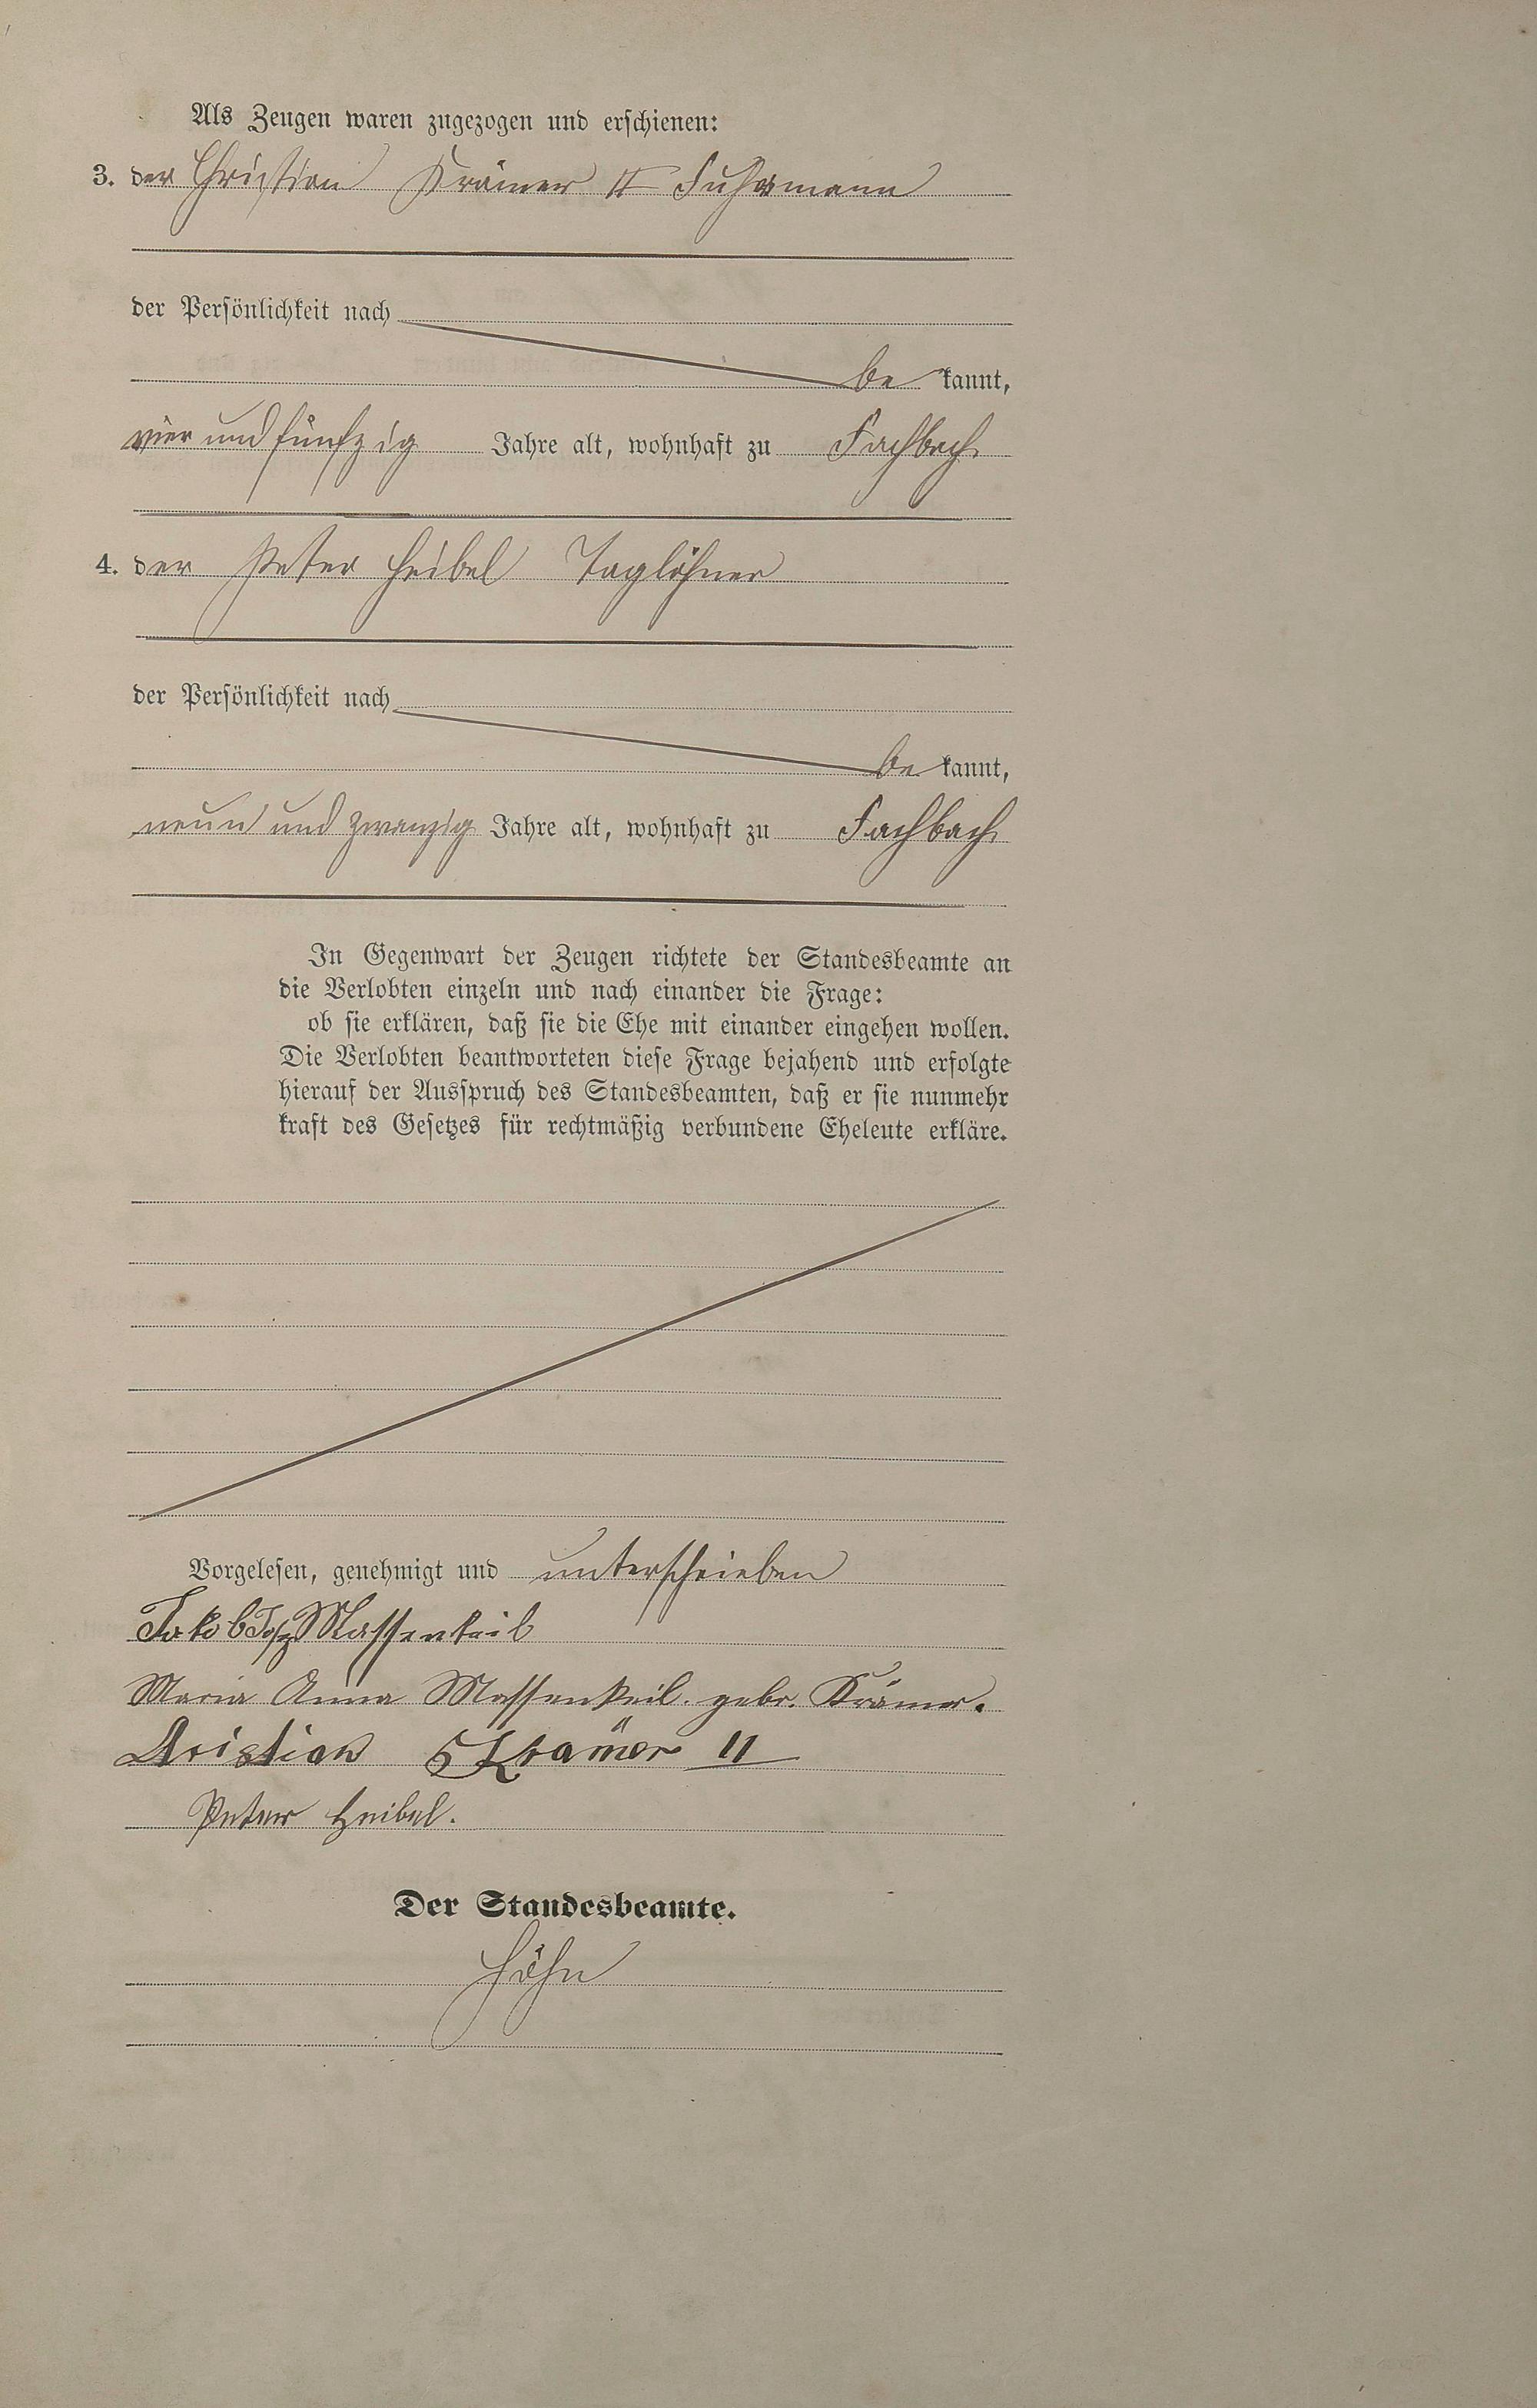 Als Zeugen waren zugezogen und erschienen:
3. der Christian Krämer II Fuhrmann
der Persönlichkeit nach
be kannt,
vier und fünfzig Jahre alt, wohnhaft zu Fachbach
4. der Peter Heibel Taglöhner
der Persönlichkeit nach
be kannt,
neun und zwanzig Jahre alt, wohnhaft zu Fachbach
In Gegenwart der Zeugen richtete der Standesbeamte an
die Verlobten einzeln und nach einander die Frage:
ob sie erklären, daß sie die Ehe mit einander eingehen wollen.
Die Verlobten beantworteten diese Frage bejahend und erfolgte
hierauf der Ausspruch des Standesbeamten, daß er sie nunmehr
kraft des Gesetzes für rechtmäßig verbundene Eheleute erkläre.
Vorgelesen, genehmigt und unterschrieben
Jakob Massenkeil
Maria Anna Massenkeil. gebr. Krämer.
Kristian Krämer II
Peter Heibel.
Der Standesbeamte.
Höhn